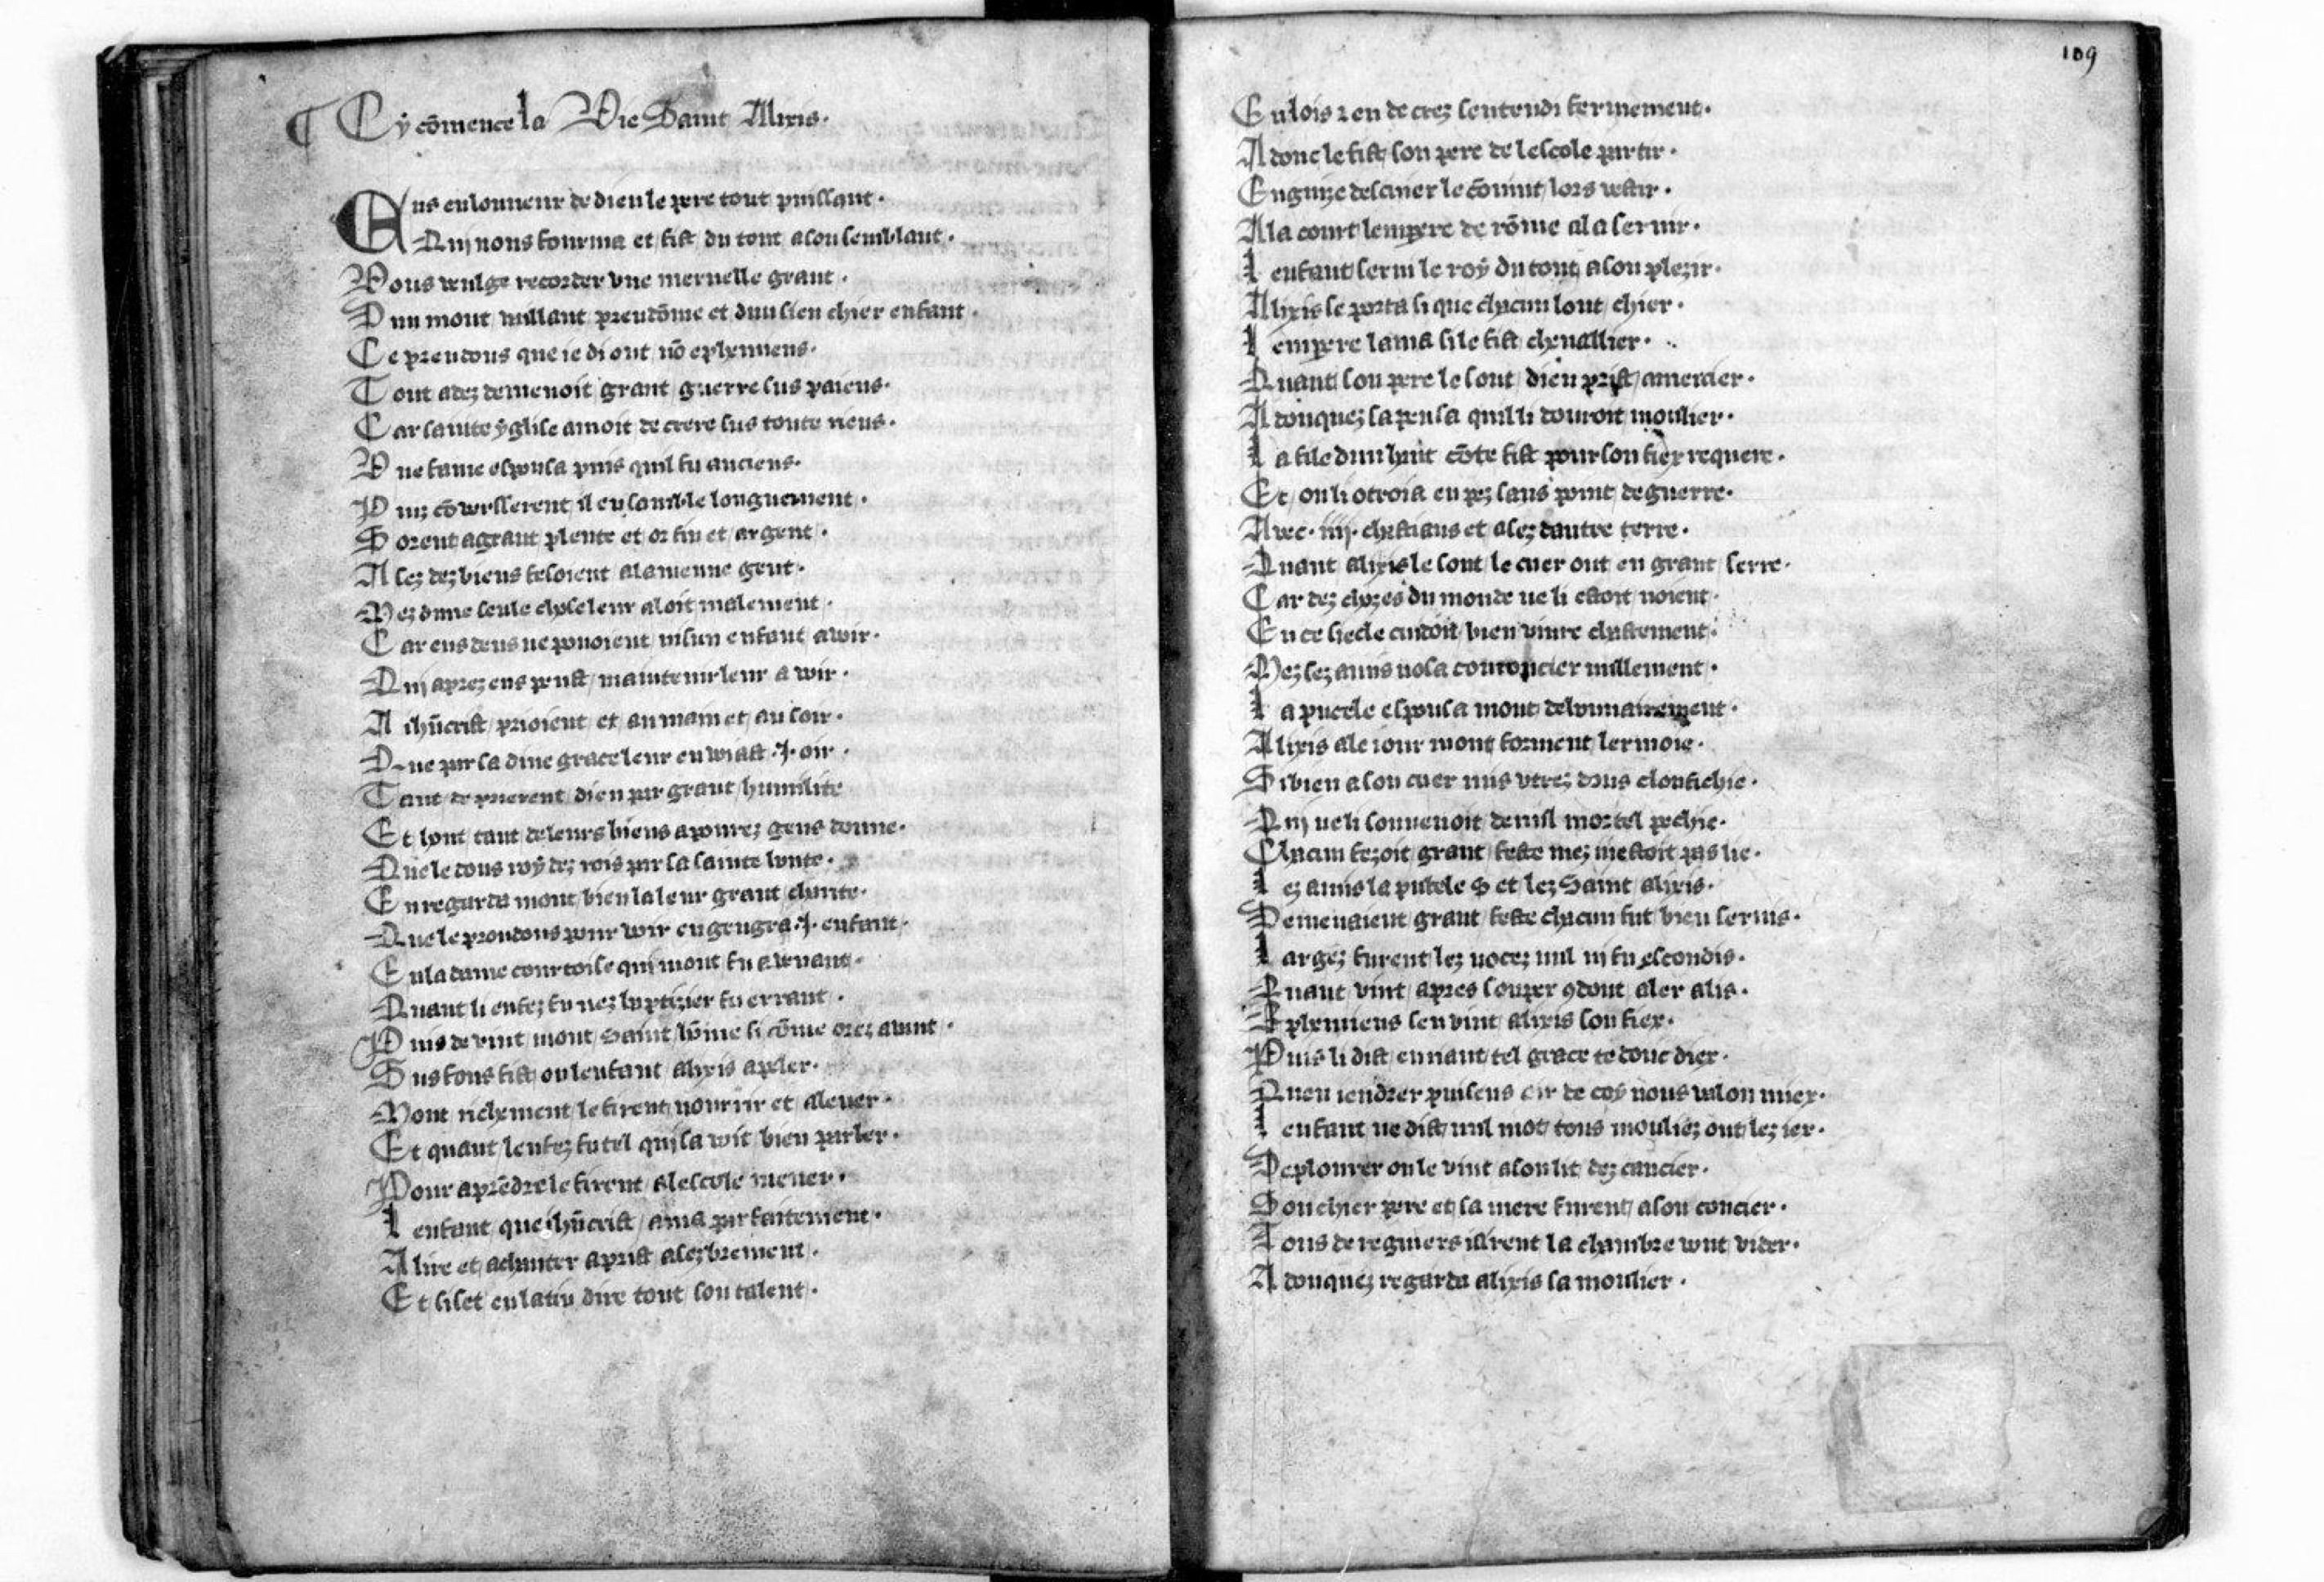 ¶ Cy cōmence la Vie Saint Alixis.
Ens eulonneur de dieu le pere tout puissant.
Qui nous fourma et fist du tout a son semblant.
Vous vulge recorder vne meruelle grant.
Dun mout vaillant preudōme et dun sien chier enfant.
Ce preudons que ie di out nō ephymiens.
Tout adez demenoit grant guerre sus paiens.
Car sainte yglise amoit de crere sus toute riens.
Vne fame espousa puis quil fu anciens.
Puiz cōverserent il ensamble longuement.
Sorent a grant plente et or fin et argent.
Assez dez biens fesoient a la menue gent.
Mez dune seule chose leur aloit malement.
Car eus deus ne pouoient nisun enfant avoir.
Qui aprez eus peust maintenir leur avoir.
A ihūcrist prioient et au main et au soir.
Que par sa dine grace leur envoiast .j. oir.
Tant de prierent dieu par grant humilite
Et sont tant de leurs biens a povrez gens donne.
Que le dous roy dez rois par sa sainte bonte.
En regarda mout bien la leur grant charite.
Que le preudons pour voir engengra .j. enfant.
En la dame courtoise qui mout fu avenant.
Quant li enfez fu nez baptizier fu errant.
Puis devint mout saint hōme si cōme orez avant.
Sus fons fist on lenfant alixis apeler.
Mout richement le firent nourrir et alever.
Et quant lenfez fu tel qui savoit bien parler.
Pour aprēdre le firent a lescole mener.
Lenfant que ihūcrist ama parfaitement.
A lire et a chanter aprist assez briement.
Et si set en latin dire tout son talent.
109
En lois ⁊ en decrez sentendi fermement.
Adonc le fist son pere de lescole partir.
En guize descuier le cōuint lors vestir.
A la court lempere de rōme ala seruir.
Lenfant serui le roy du tout a son plezir.
Alixis se porta si que chacun lout chier.
Lempere lama si le fist cheuallier.
Quant son pere le sout dieu prist a mercier.
Adonquez sa pensa quil li donroit moulier.
La file dun haut cōte fist pour son fiex requere.
Et on li otroia en pez sans point de guerre.
Avec .iiij. chastiaus et assez dautre terre.
Quant alixis le sout le cuer out en grant serre.
Car dez chozes du monde ne li estoit noient.
En ce siecle cuidoit bien viure chastement.
Mez sez amis nosa couroucier nullement.
La pucele espousa mout debonnairement.
Alixis ale iour mout forment lermoie.
Si bien a son cuer mis vers dous clousichie.
Qui ne li souuenoit de nisl mortel pechie.
Chacun fezoit grant feste mez niestoit pas lie.
Lez amis la pucele ⁊ et lez Saint alixis.
Demenaient grant feste chacun fut bien seruis.
Largez furent lez nocez nul ni fu escondis.
Quant vint apres souper ꝯdout aler as lis.
Ephymiens sen vint alixis son fiex.
Puis li dist en riant tel grace te doint diex.
Quen iendrer puisens oir de coy nous valon miex.
Lenfant ne dist nul mot tous moulliez out lez iex.
De plourer on le vint a son lit dez caucier.
Son chier pere et sa mere furent a son coucier.
Tous dereguiers issirent la chambre vont vider.
Adonquez regarda alixis sa moulier.